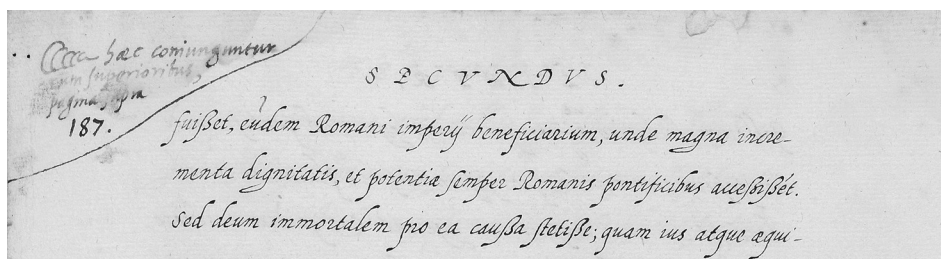 Ccccc hæc coniunguntur
cum superioribus,
pagina supra
187.
SECVNDVS.
fuißet, eũdem Romani imperij beneficiarium, unde magna incre-
menta dignitatis, et potentiæ semper Romanis pontificibus acceßißẽt.
Sed deum immortalem pro ea caußa stetiße; quam ius atque æqui-